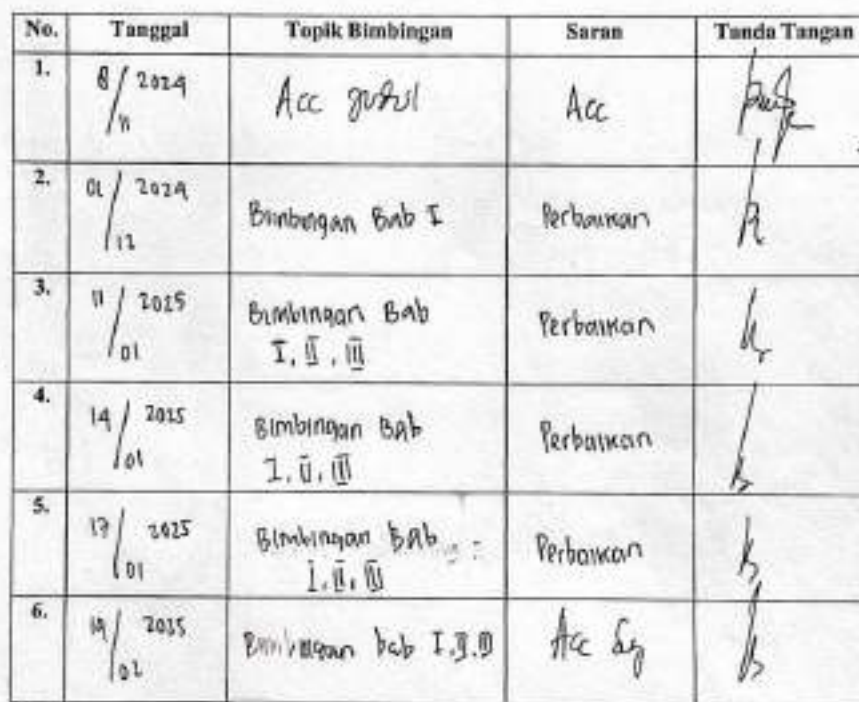 No. Tanggal Topik Bimbingan Saran Tanda Tangan
1. 8/11 2024 Acc judul Acc
2. 02/12 2024 Bimbingan Bab I Perbaikan
3. 11/01 2025 Bimbingan Bab Perbaikan
I, II, III
4. 14/01 2025 Bimbingan BAb Perbaikan
I, II, III
5. 17/01 2025 Bimbingan BAb Perbaikan
I, II, III
6. 19/02 2025 Bimbingan bab I, II, III Acc